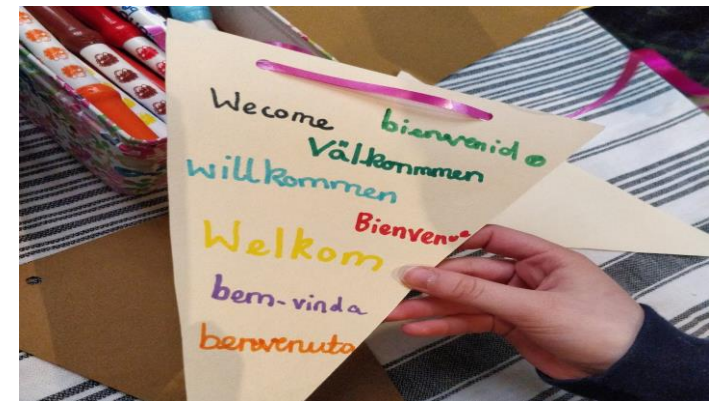 Wecome
bienvenid@
Välkommmen
willkommen
Bienvenue
Welkom
bem-vinda
benvenuto